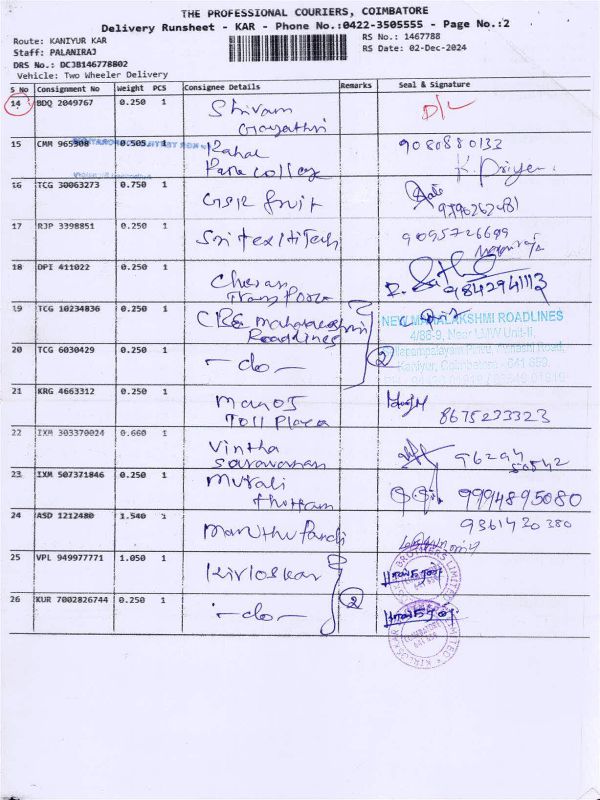 THE PROFESSIONAL COURIERS, COIMBATORE
Delivery Runsheet - KAR - Phone No.:0422-3505555 - Page No.:2
Route: KANIYUR KAR
RS No.: 1467788
Staff: PALANIRAJ
RS Date: 02-Dec-2024
DRS No.: DCJB146778802
Vehicle: Two Wheeler Delivery
S No Consignment No Weight PCS Consignee Details Remarks Seal & Signature
14 BDQ 2049767 0.250 1 Shivam D/L
Gayathri
15 CMR 965308 0.505 1 9080880133
College
16 TCG 30063273 0.750 1 Fruit
17 RJP 3398851 0.250 1 Sritex HiTech 9095726699
18 DPI 411022 0.250 1 Cheran
Transport 9842941113
19 TCG 10234836 0.250 1 Mahalakshmi
Roadlines
NEW MAHALAKSHMI ROADLINES
4/88-9, Near LMW Unit-II,
20 TCG 6030429 0.250 1 -do- 2
Kaniyur, Coimbatore - 641 659
21 KRG 4663312 0.250 1 Manoj
Toll Plaza 8675233323
22 IXM 303370024 0.660 1 Vintha 96294
Saravanan 50542
23 IXM 507371846 0.250 1 Murali 9994895080
24 ASD 1212480 1.540 1 9361420380
Maruthu Pandi
25 VPL 949997771 1.050 1 Kirloskar
26 KUR 7002826744 0.250 1 -do- 2